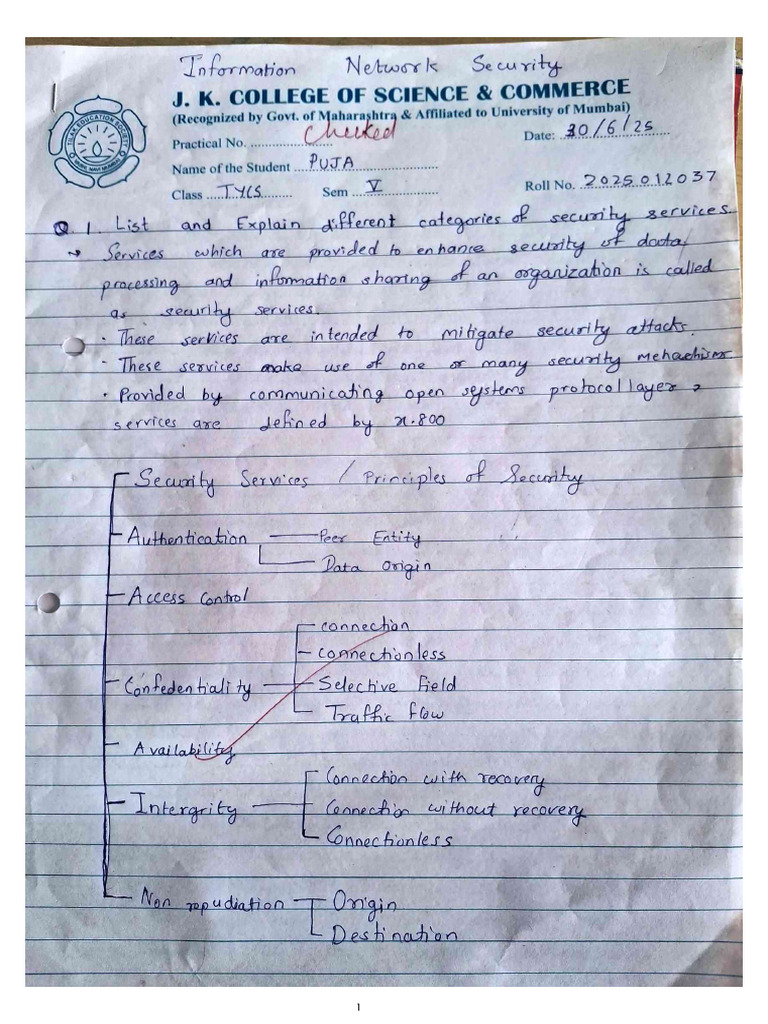 Information Network Security
J. K. COLLEGE OF SCIENCE & COMMERCE
(Recognized by Govt. of Maharashtra & Affiliated to University of Mumbai)
Practical No. .................... checked
Date: 30/6/25
Name of the Student ... PUJA
Class ....TYCS........ Sem ....V....
Roll No. 2025012037
Q. 1. List and Explain different categories of security services.
→ Services which are provided to enhance security of data,
processing and information sharing of an organization is called
as security services.
· These services are intended to mitigate security attacks.
· These services make use of one or many security mehachism
· Provided by communicating open systems protocol layer
services are defined by x.800
Security Services / Principles of Security
Authentication
Peer Entity
Data Origin
Access Control
Confedentiality
connection
connectionless
Selective Field
Traffic flow
Availability
Intergrity
Connection with recovery
Connection without recovery
Connectionless
Non repudiation
Origin
Destination
1